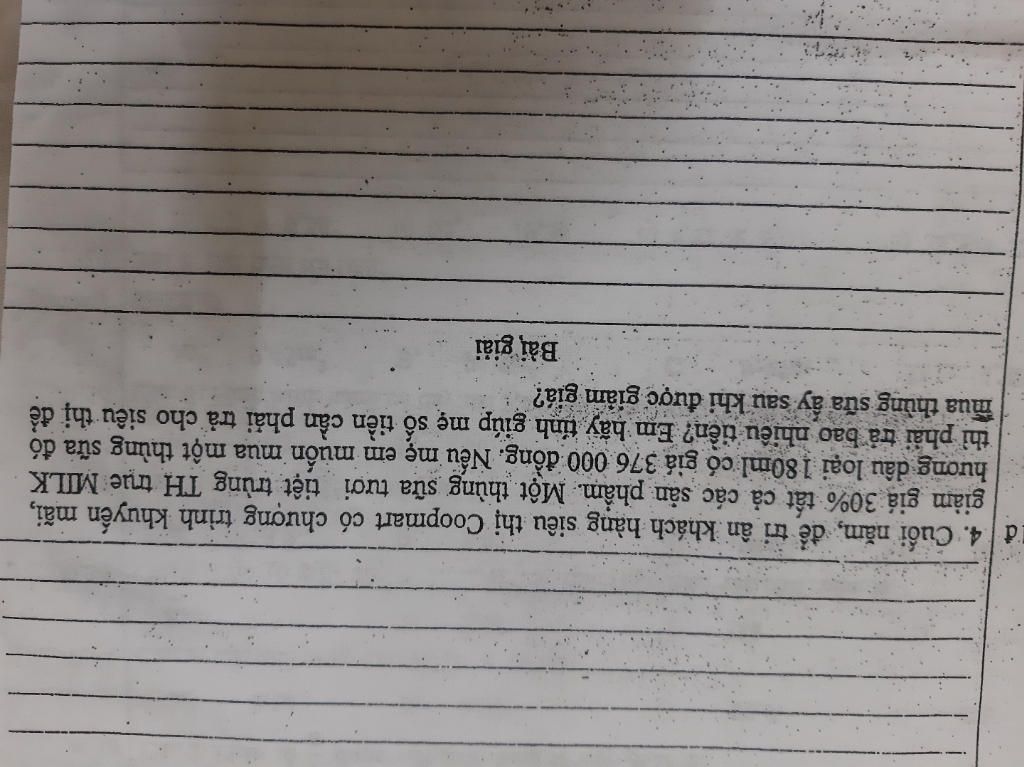 1đ
4. Cuối năm, để tri ân khách hàng siêu thị Coopmart có chượng trình khuyến mãi,
giảm giá 30% tất cả các sản phẩm. Một thùng sữa tươi tiệt trùng TH true MILK
hương dâu loại 180ml có giá 376 000 đồng. Nếu mẹ em muốn mua một thùng sữa đó
thì phải trả bao nhiêu tiền? Em hãy tính giúp mẹ số tiền cần phải trả cho siêu thị để
mua thùng sữa ấy sau khi được giảm giá?
Bài giải